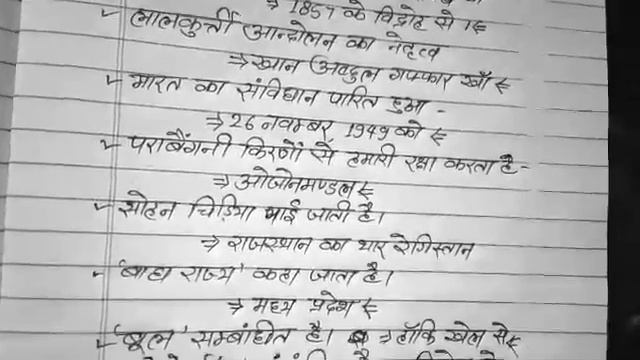 ⇒ 1857 के विद्रोह से।
लालकुर्ती आन्दोलन का नेतृत्व
⇒ खान अब्दुल गफ्फार खाँ
भारत का संविधान पारित हुआ -
⇒ 26 नवम्बर, 1949 को
पराबैंगनी किरणों से हमारी रक्षा करता है -
⇒ ओजोनमण्डल
सोहन चिड़िया पाई जाती है।
⇒ राजस्थान का थार रेगिस्तान
'बाघ राज्य' कहा जाता है।
⇒ मध्य प्रदेश
'बुल' सम्बंधित है। ⇒ हॉकि खेल से